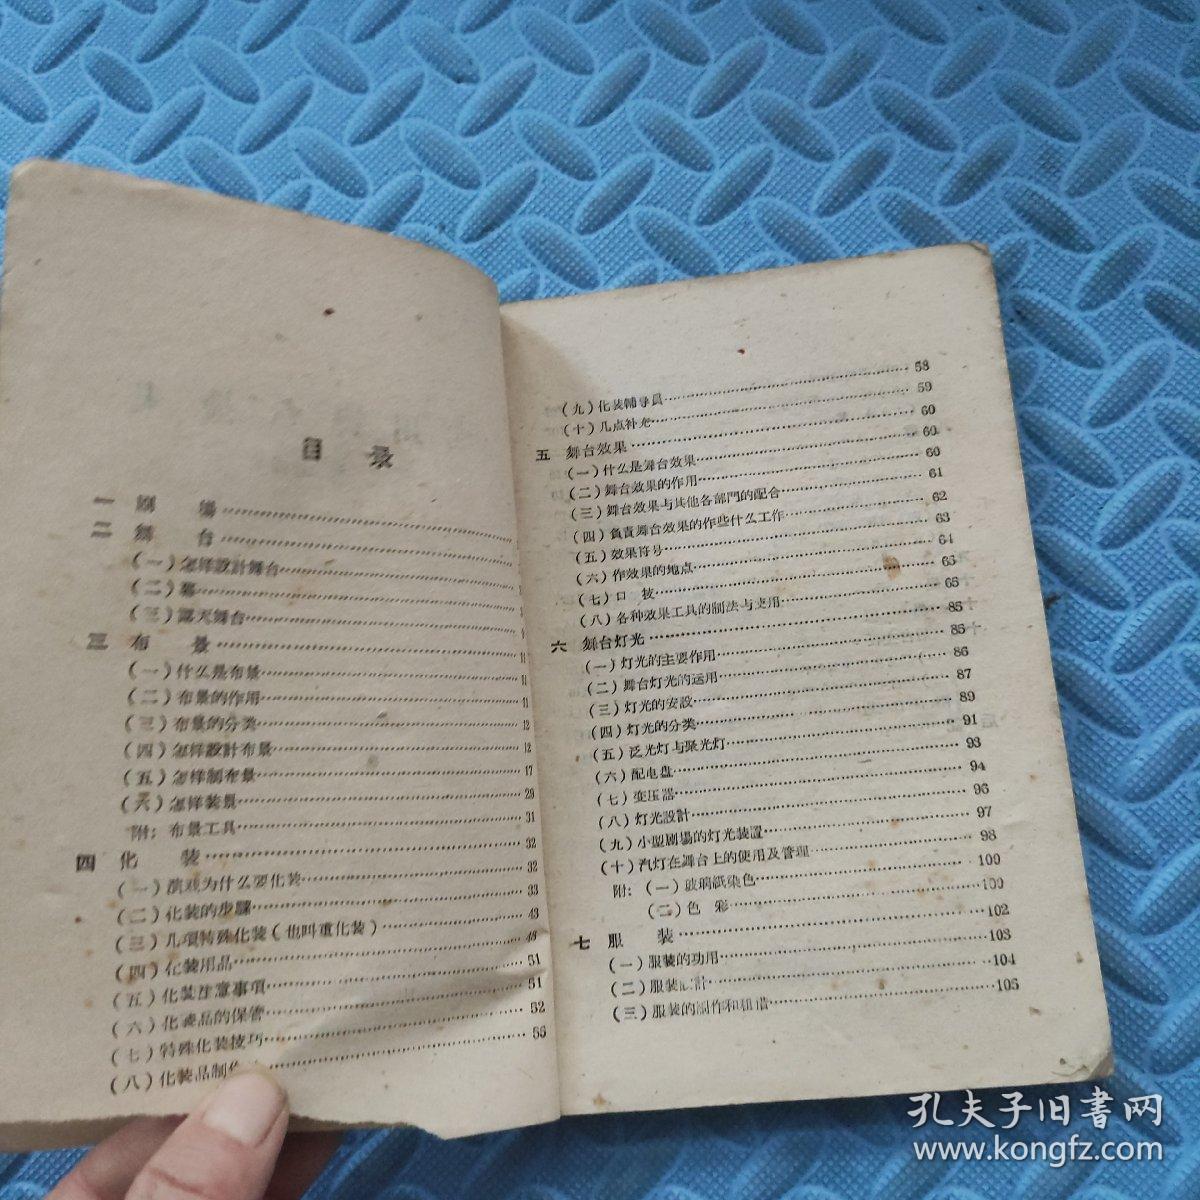 目 录
一 剧 場
二 舞 台
(一)怎样設計舞台
(二)幕
(三)露天舞台
三 布 景 11
(一)什么是布景 11
(二)布景的作用 11
(三)布景的分类 12
(四)怎样設計布景 12
(五)怎样制布景 17
(六)怎样装景 29
附:布景工具 31
四 化 装 32
(一)演戏为什么要化装 32
(二)化装的步驟 33
(三)几項特殊化装(也叫重化装) 43
(四)化装用品 48
(五)化装注意事項 51
(六)化装品的保管 51
(七)特殊化装技巧 52
(八)化装品制作 55
(九)化装輔导員 58
(十)几点补充 59
五 舞台效果 60
(一)什么是舞台效果 60
(二)舞台效果的作用 60
(三)舞台效果与其他各部門的配合 61
(四)負責舞台效果的作些什么工作 62
(五)效果符号 63
(六)作效果的地点 64
(七)口 技 65
(八)各种效果工具的制法与使用 65
六 舞台灯光 85
(一)灯光的主要作用 85
(二)舞台灯光的运用 86
(三)灯光的安設 87
(四)灯光的分类 89
(五)泛光灯与聚光灯 91
(六)配电盘 93
(七)变压器 94
(八)灯光設計 96
(九)小型剧場的灯光装置 97
(十)汽灯在舞台上的使用及管理 98
附:(一)玻璃紙染色 100
(二)色 彩 100
七 服 装 102
(一)服装的功用 103
(二)服装設計 104
(三)服装的制作和租借 105
孔夫子旧書网
www.kongfz.com